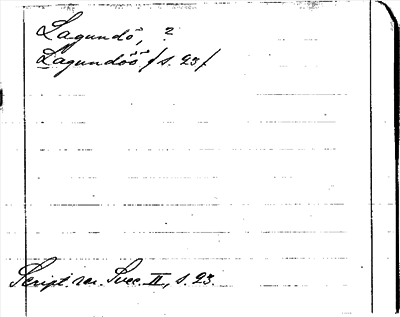 Lagundö, ?
Lagundöö / s. 23 /
Script. rer. Svec. II, s. 23.